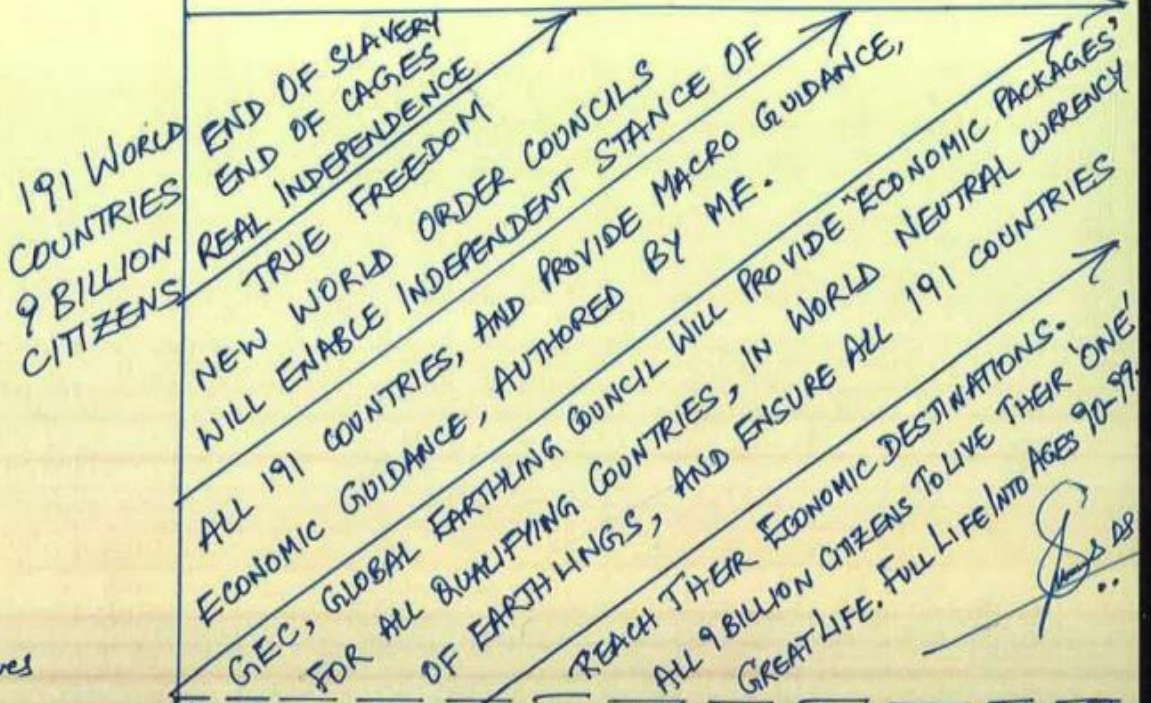 191 WORLD
COUNTRIES
9 BILLION
CITIZENS
END OF SLAVERY
END OF CAGES
REAL INDEPENDENCE
TRUE FREEDOM
NEW WORLD ORDER COUNCILS
WILL ENABLE INDEPENDENT STANCE OF
ALL 191 COUNTRIES, AND PROVIDE MACRO GUIDANCE,
ECONOMIC GUIDANCE, AUTHORED BY ME.
GEC, GLOBAL EARTHLING COUNCIL WILL PROVIDE "ECONOMIC PACKAGES"
FOR ALL QUALIFYING COUNTRIES, IN WORLD NEUTRAL CURRENCY
OF EARTHLINGS, AND ENSURE ALL 191 COUNTRIES
REACH THEIR ECONOMIC DESTINATIONS.
ALL 9 BILLION CITIZENS TO LIVE THEIR 'ONE'
GREAT LIFE. FULL LIFE INTO AGES 90-99.